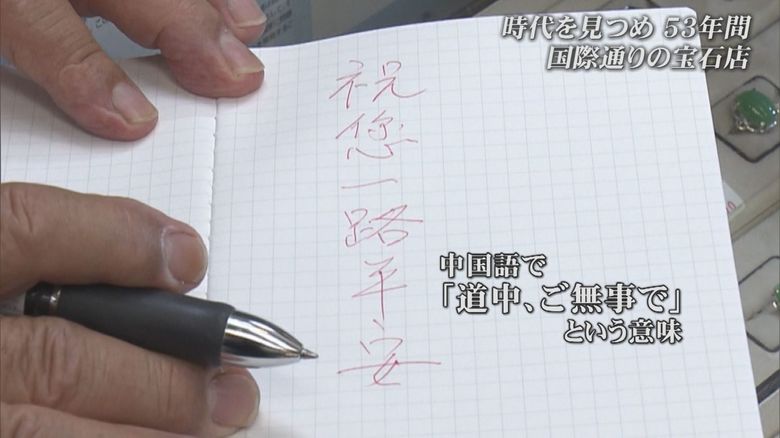 時代を見つめ 53年間
国際通りの宝石店
祝您一路平安
中国語で
「道中、ご無事で」
という意味